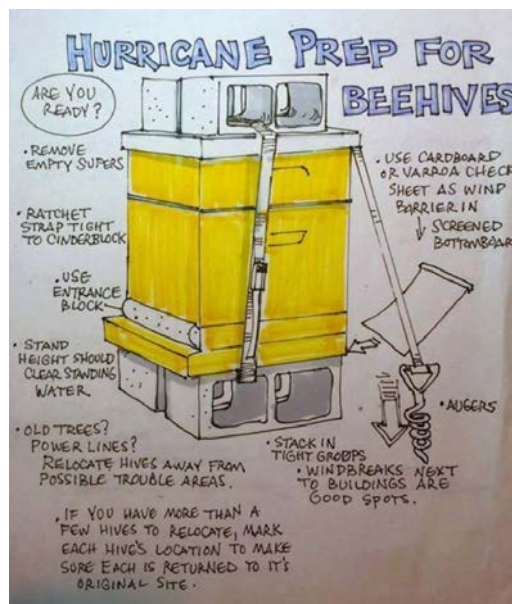 HURRICANE PREP FOR
BEEHIVES
ARE YOU
READY?
• REMOVE
EMPTY SUPERS
• RATCHET
STRAP TIGHT
TO CINDERBLOCK
• USE
ENTRANCE
BLOCK
• STAND
HEIGHT SHOULD
CLEAR STANDING
WATER.
• USE CARDBOARD
OR VARROA CHECK
SHEET AS WIND
BARRIER IN
SCREENED
BOTTOMBOAR
• AUGERS
• OLD TREES?
POWER LINES?
RELOCATE HIVES AWAY FROM
POSSIBLE TROUBLE AREAS.
• STACK IN
TIGHT GROUPS
• WINDBREAKS NEXT
TO BUILDINGS ARE
GOOD SPOTS.
• IF YOU HAVE MORE THAN A
FEW HIVES TO RELOCATE, MARK
EACH HIVE'S LOCATION TO MAKE
SURE EACH IS RETURNED TO IT'S
ORIGINAL SITE.